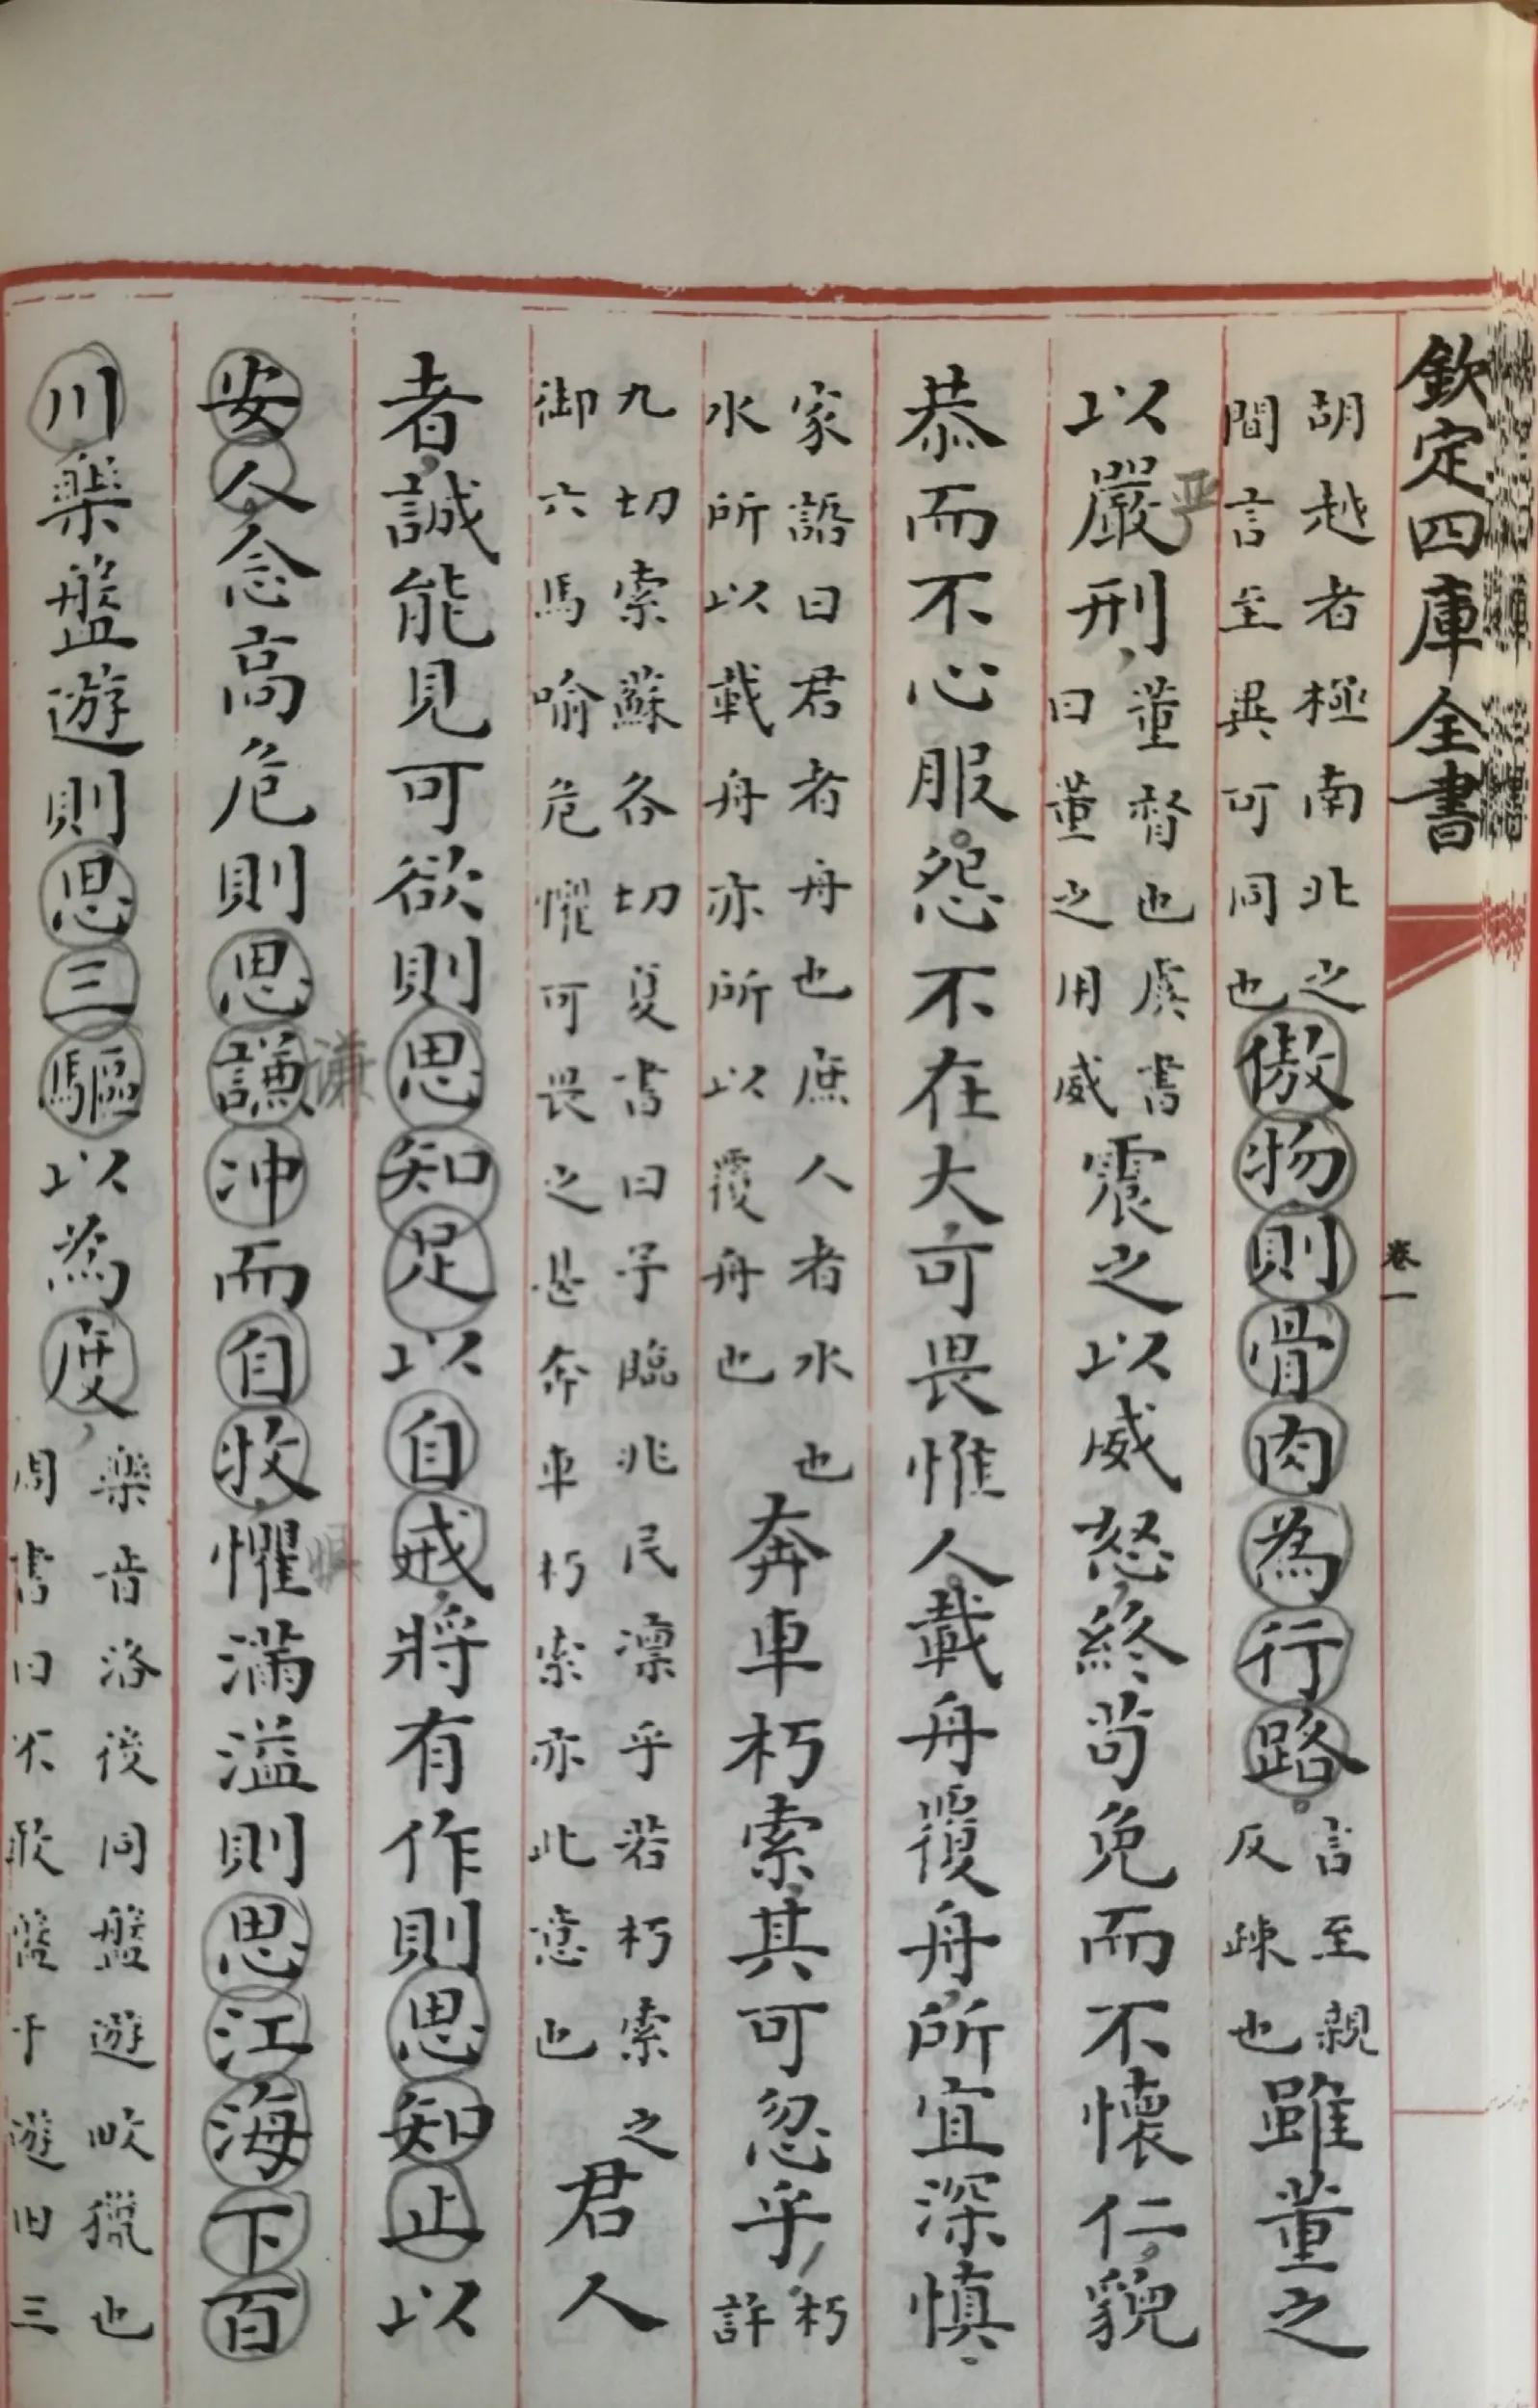 欽定四庫全書
卷一
胡越者極南北之
間言至異可同也
傲物則骨肉為行路
言至親
反疎也
雖董之
以嚴刑
严
董督也虞書
曰董之用威
震之以威怒終苟免而不懷仁貌
恭而不心服怨不在大可畏惟人載舟覆舟所宜深慎
家語曰君者舟也庶人者水也
水所以載舟亦所以覆舟也
奔車朽索其可忽乎
朽
許
九切索蘇各切夏書曰予臨兆民凛乎若朽索之
御六馬喻危懼可畏之甚奔車朽索亦此意也
君人
者誠能見可欲則思知足以自戒將有作則思知止以
安人念高危則思謙冲而自牧懼滿溢則思江海下百
谦
川樂盤遊則思三驅以為度
樂音洛後同盤遊畋獵也
周書曰不敢盤于遊田三